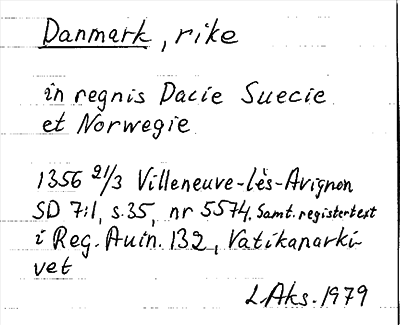 Danmark, rike
in regnis Dacie Suecie
et Norwegie
1356 21/3 Villeneuve-lès-Avignon
SD 7:1, s.35, nr 5574. Samt. registertext
i Reg. Auin. 132, Vatikanarki-
vet
L Aks. 1979